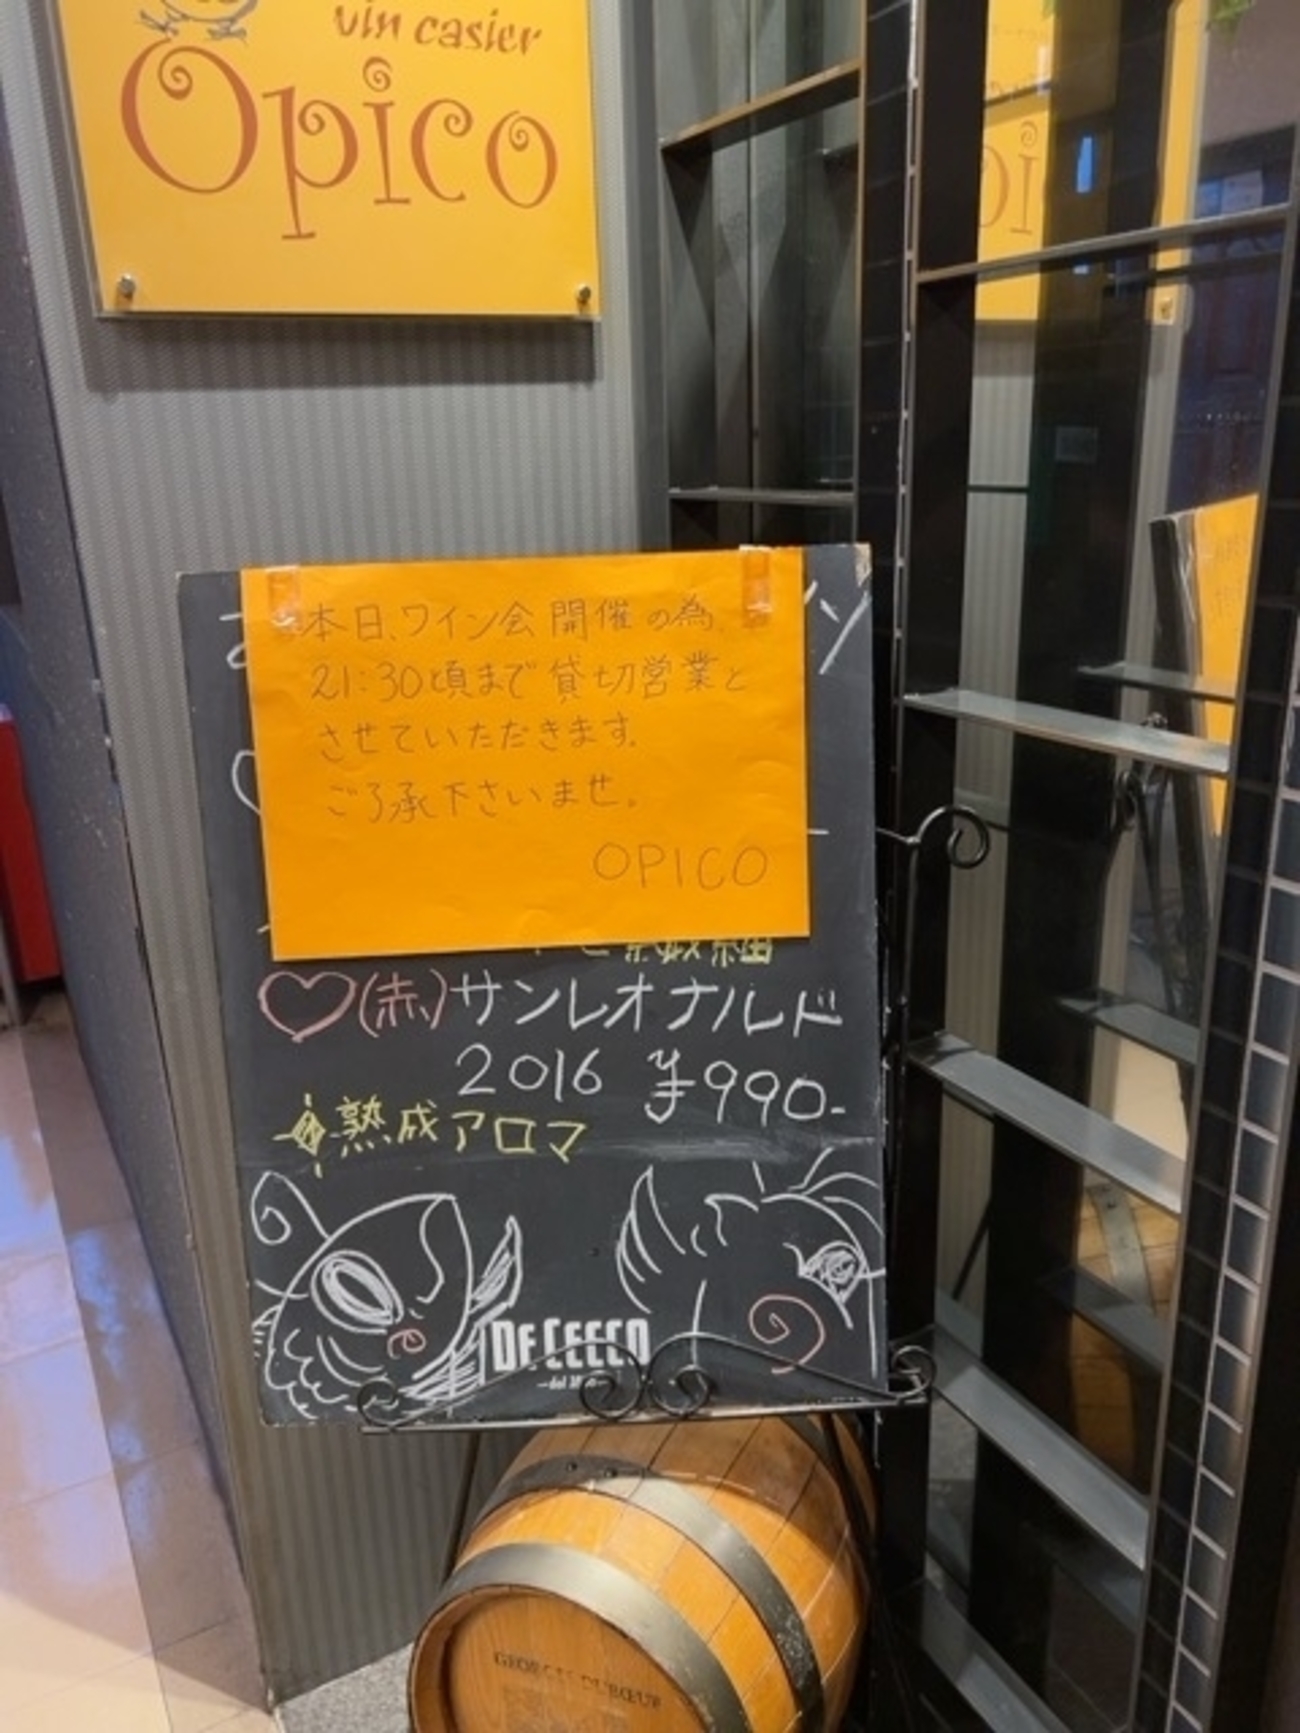 vin casier
Opico
本日、ワイン会開催の為、
21:30頃まで貸切営業と
させていただきます。
ご了承下さいませ。
OPICO
♡(赤)サンレオナルド
2016 ¥990-
熟成アロマ
DE CECCO
GEORGES DUBŒUF